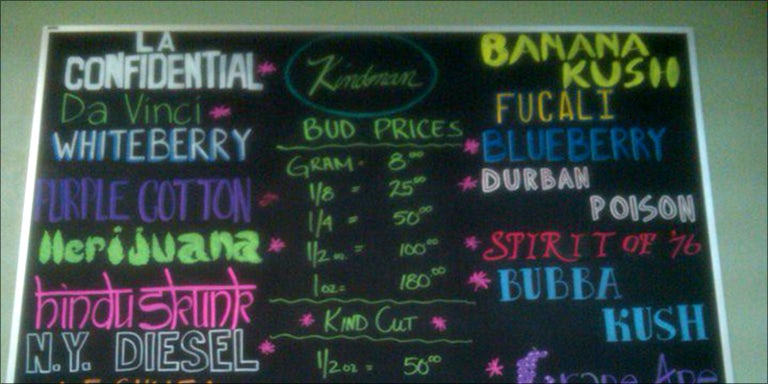 LA
CONFIDENTIAL
Da Vinci
WHITEBERRY
PURPLE COTTON
Merijuana
hindu skunk
N.Y. DIESEL
Kindman
BUD PRICES
GRAM - 8.00
1/8 = 25.00
1/4 = 50.00
1/2 oz = 100.00
1 oz = 180.00
KIND CUT
1/2 oz = 50.00
BANANA
KUSH
FUCALI
BLUEBERRY
DURBAN
POISON
SPIRIT OF '76
BUBBA
KUSH
Grape Ape